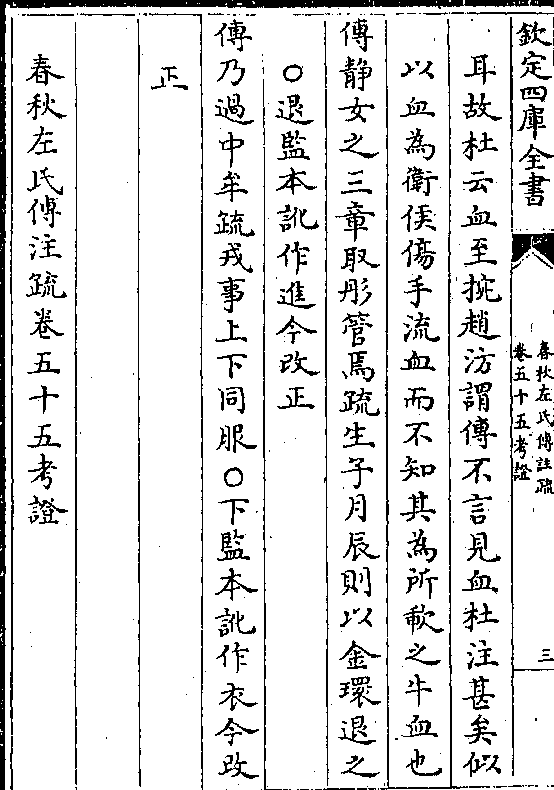 欽定四庫全書
春秋左氏傳註疏
卷五十五考證
三
耳故杜云血至捥趙汸謂傳不言見血杜注甚矣似
以血為衛侯傷手流血而不知其為所歃之牛血也
傳静女之三章取彤管焉疏生子月辰則以金環退之
○退監本訛作進今改正
傳乃過中牟疏戎事上下同服○下監本訛作衣今改
正
春秋左氏傳注疏卷五十五考證